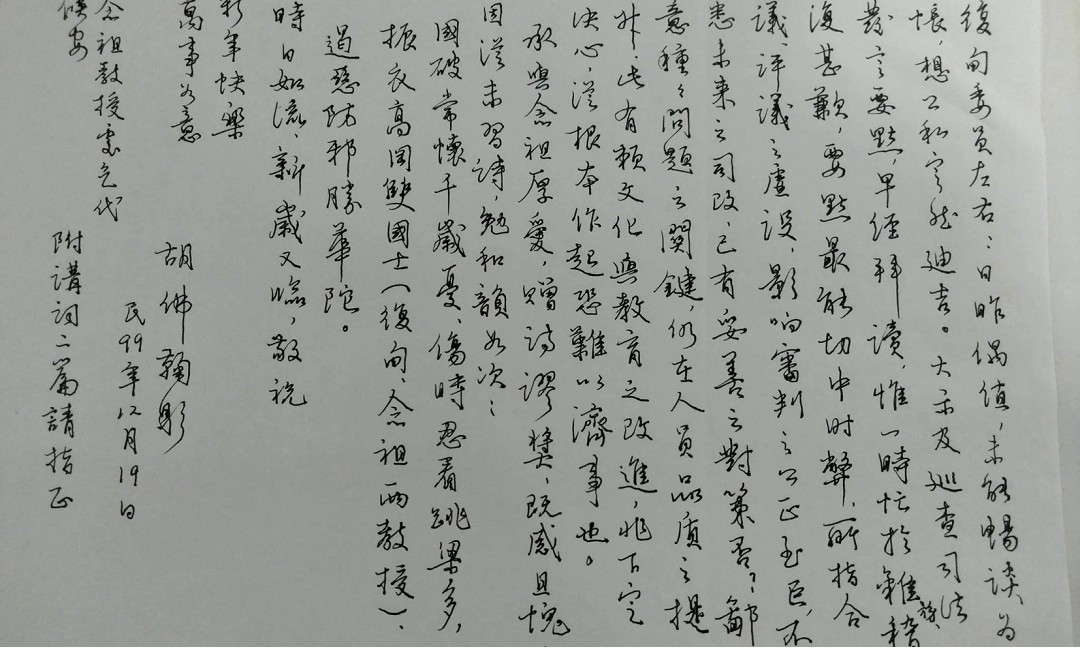 復旬委員左右：日昨偶值，未能暢談為
悵，想公私定然迪吉。大示及巡查司法
發言要點，早經拜讀，惟一時忙於雜務，稽
復甚歉，要點最能切中时弊，所指合
議、評議之虛設，影响審判之公正至巨，不
悉未来之司改，已有妥善之對策否？鄙
意種々問題之關鍵，仍在人員品质之提
升，此有賴文化與教育之改進，非下定
决心，從根本作起恐難以濟事也。
承與念祖厚愛，贈詩謬獎，既感且愧，
因從未習詩，勉和韻如次：
國破常懷千歲憂，傷時忍看跳梁多，
振衣高岡雙國士（復旬、念祖兩教授），
遏惡防邪勝華陀。
時日如流，新歲又臨，敬祝
新年快樂
萬事如意
念祖教授處乞代
候安
胡佛鞠躬
民99年12月19日
附講詞二篇請指正